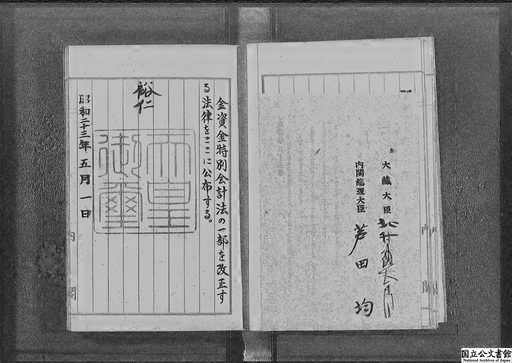 大藏大臣 北村徳太郎
内閣総理大臣 芦田 均
金資金特別会計法の一部を改正す
る法律をここに公布する。
裕仁
天皇
御璽
昭和二十三年五月一日
内閣
国立公文書館
National Archives of Japan